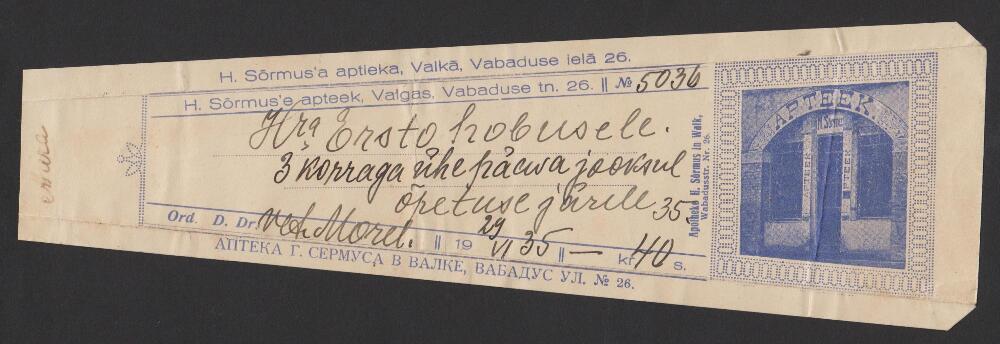 H. Sõrmus'a aptieka, Valkā, Vabaduse ielā 26.
H. Sõrmus'e apteek, Valgas, Vabaduse tn. 26. || № 5036
Hra Ersto hobusele.
3 korraga ühe päewa jooksul
õpetuse järele 35
Ord. D. Dr. Vet. Morel. || 19 29/VI 35 || — kr. 40 s.
АПТЕКА Г. СЕРМУСА В ВАЛКЕ, ВАБАДУС УЛ. № 26.
Apotheke H. Sõrmus in Walk,
Wabadusstr. Nr. 26.
APTEEK
H. Sõrmus
APTEEK
APTEEK